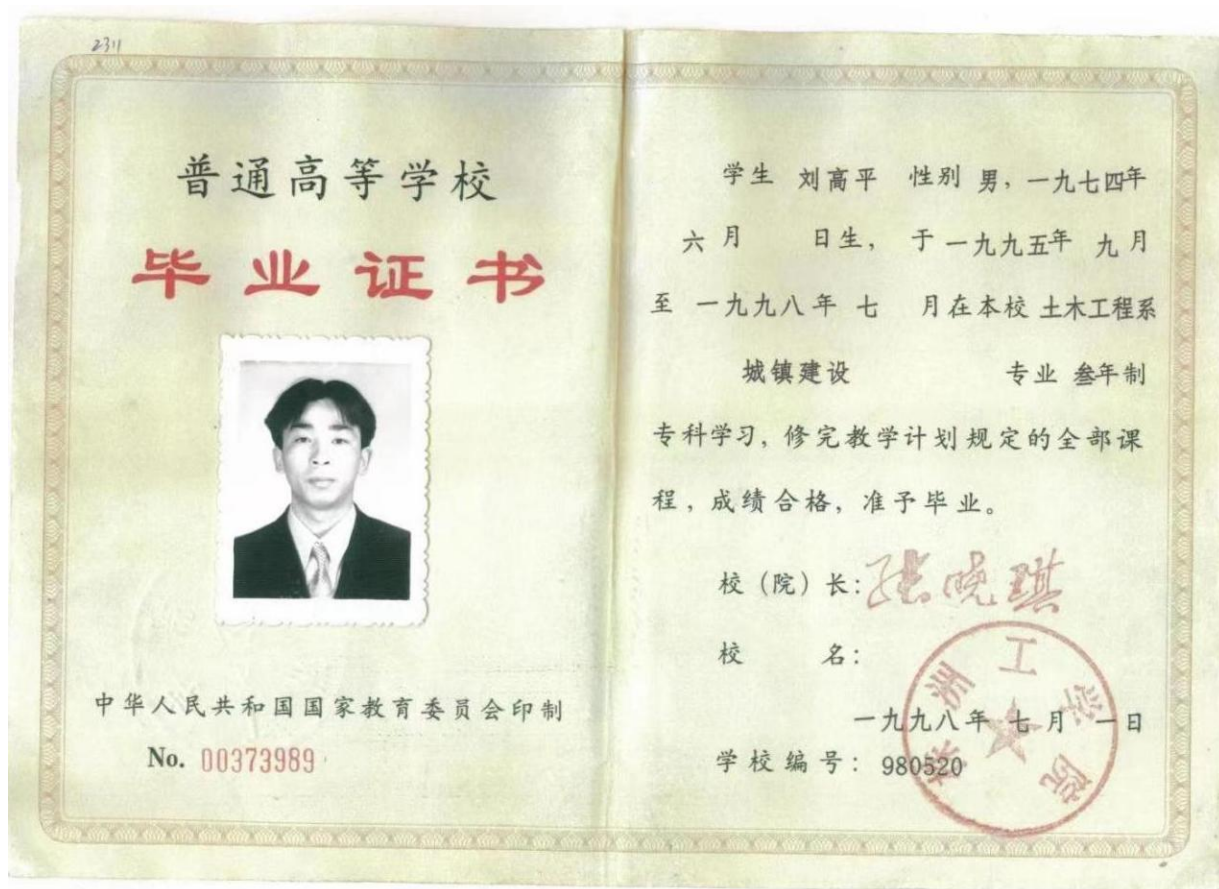 2311
普通高等学校
毕业证书
中华人民共和国国家教育委员会印制
No. 00373989
学生 刘高平 性别 男，一九七四年
六月 日生，于一九九五年 九月
至 一九九八年 七 月在本校 土木工程系
城镇建设 专业 叁年制
专科学习，修完教学计划规定的全部课
程，成绩合格，准予毕业。
校（院）长：张晓琪
校 名：
株洲工学院
一九九八年 七月 一日
学校编号：980520